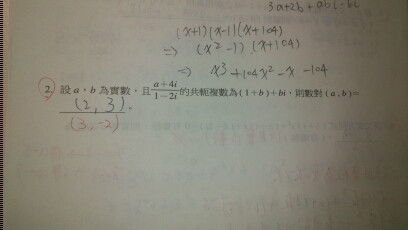 3a+2b+abi-bi
(x+1)(x-1)(x+104)
⇒ (x²-1)(x+104)
⇒ x³+104x²-x-104
2. 設 a、b 為實數，且 (a+4i)/(1-2i) 的共軛複數為 (1+b)+bi，則數對 (a, b)=
(2, 3)。
(3,-2)